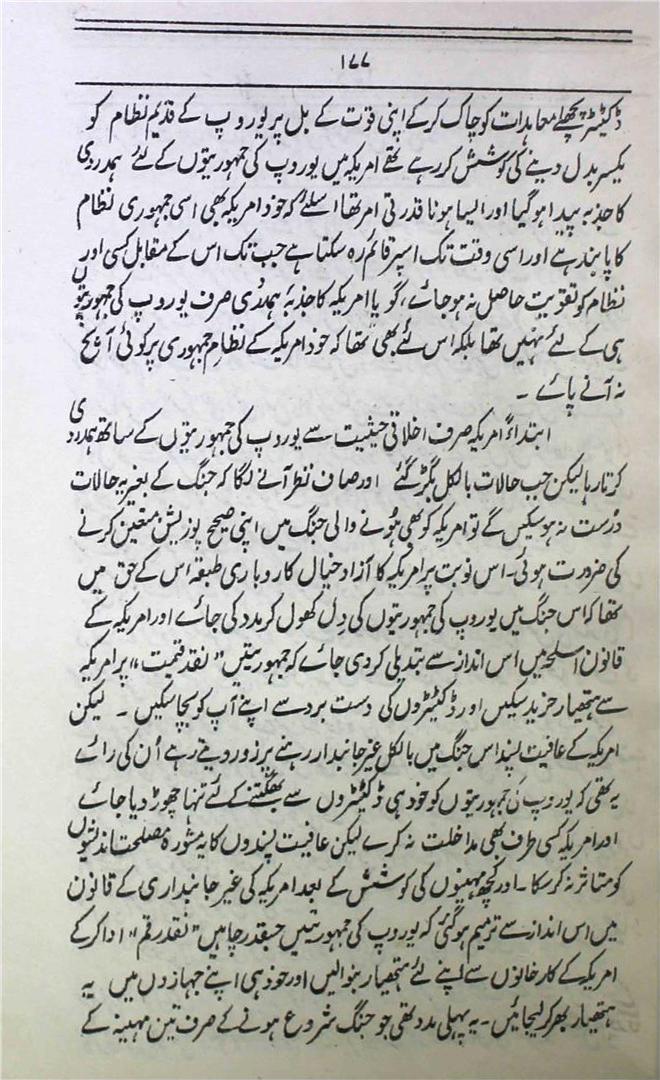 ۱۷۷
ڈکٹیٹر پچھلے معاہدات کو چاک کر کے اپنی قوت کے بل پر یوروپ کے قدیم نظام کو
یکسر بدل دینے کی کوشش کر رہے تھے امریکہ میں یوروپ کی جمہوریتوں کے لئے ہمدردی
کا جذبہ پیدا ہو گیا اور ایسا ہونا قدرتی امر تھا اسلئے کہ خود امریکہ بھی اسی جمہوری نظام
کا پابند ہے اور اسی وقت تک اسپر قائم رہ سکتا ہے جب تک اس کے مقابل کسی اور
نظام کو تقویت حاصل نہ ہو جائے، گویا امریکہ کا جذبۂ ہمدردی صرف یوروپ کی جمہوریتوں
ہی کے لئے نہیں تھا بلکہ اس لئے بھی تھا کہ خود امریکہ کے نظام جمہوری پر کوئی آنچ
نہ آنے پائے ۔
ابتداءً امریکہ صرف اخلاقی حیثیت سے یوروپ کی جمہوریتوں کے ساتھ ہمدردی
کرتا رہا لیکن جب حالات بالکل بگڑ گئے اور صاف نظر آنے لگا کہ جنگ کے بغیر یہ حالات
درست نہ ہو سکیں گے تو امریکہ کو بھی ہونے والی جنگ میں اپنی صحیح پوزیشن متعین کرنے
کی ضرورت ہوئی۔ اس نوبت پر امریکہ کا آزاد خیال کاروباری طبقہ اس کے حق میں
تھا کہ اس جنگ میں یوروپ کی جمہوریتوں کی دل کھول کر مدد کی جائے اور امریکہ کے
قانون اسلحہ میں اس انداز سے تبدیلی کر دی جائے کہ جمہوریتیں "نقد قیمت" پر امریکہ
سے ہتھیار خرید سکیں اور ڈکٹیٹروں کی دست برد سے اپنے آپ کو بچا سکیں ۔ لیکن
امریکہ کے عافیت پسند اس جنگ میں بالکل غیر جانبدار رہنے پر زور دیتے رہے اُن کی رائے
یہ تھی کہ یوروپ کی جمہوریتوں کو خود ہی ڈکٹیٹروں سے بھگتنے کے لئے تنہا چھوڑ دیا جائے
اور امریکہ کسی طرف بھی مداخلت نہ کرے لیکن عافیت پسندوں کا یہ مشورہ مصلحت اندیشوں
کو متاثر نہ کر سکا ۔ اور کچھ مہینوں کی کوشش کے بعد امریکہ کی غیر جانبداری کے قانون
میں اس انداز سے ترمیم ہو گئی کہ یوروپ کی جمہوریتیں جسقدر چاہیں "نقد رقم" ادا کر کے
امریکہ کے کارخانوں سے اپنے لئے ہتھیار بنوالیں اور خود ہی اپنے جہازوں میں یہ
ہتھیار بھر کر لیجائیں ۔ یہ پہلی مدد تھی جو جنگ شروع ہونے کے صرف تین مہینہ کے